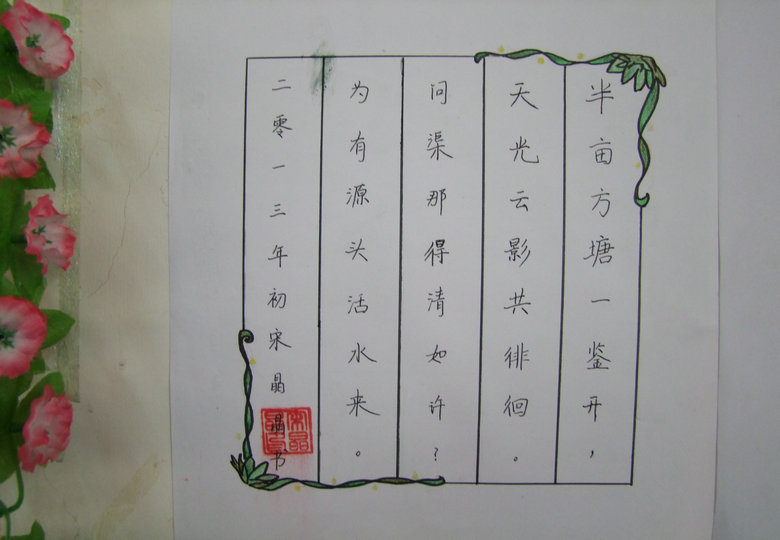 半亩方塘一鉴开，
天光云影共徘徊。
问渠那得清如许？
为有源头活水来。
二零一三年初宋晶晶书